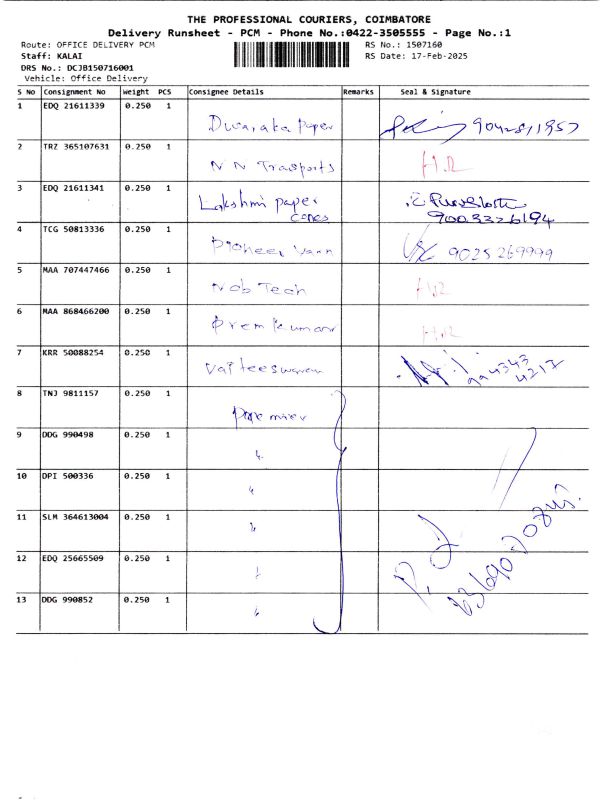 THE PROFESSIONAL COURIERS, COIMBATORE
Delivery Runsheet - PCM - Phone No.:0422-3505555 - Page No.:1
Route: OFFICE DELIVERY PCM RS No.: 1507160
Staff: KALAI RS Date: 17-Feb-2025
DRS No.: DCJB150716001
Vehicle: Office Delivery
S No Consignment No Weight PCS Consignee Details Remarks Seal & Signature
1 EDQ 21611339 0.250 1
Dwaraka Paper
2 TRZ 365107631 0.250 1
N N Trasports H.R
3 EDQ 21611341 0.250 1
Lakshmi paper
cones 9003326194
4 TCG 50813336 0.250 1
Pioneer 9025269999
5 MAA 707447466 0.250 1
Nob Tech H.R
6 MAA 868466200 0.250 1
Premkumar H.R
7 KRR 50088254 0.250 1
8 TNJ 9811157 0.250 1
9 DDG 990498 0.250 1
10 DPI 500336 0.250 1
11 SLM 364613004 0.250 1
12 EDQ 25665509 0.250 1
13 DDG 990852 0.250 1